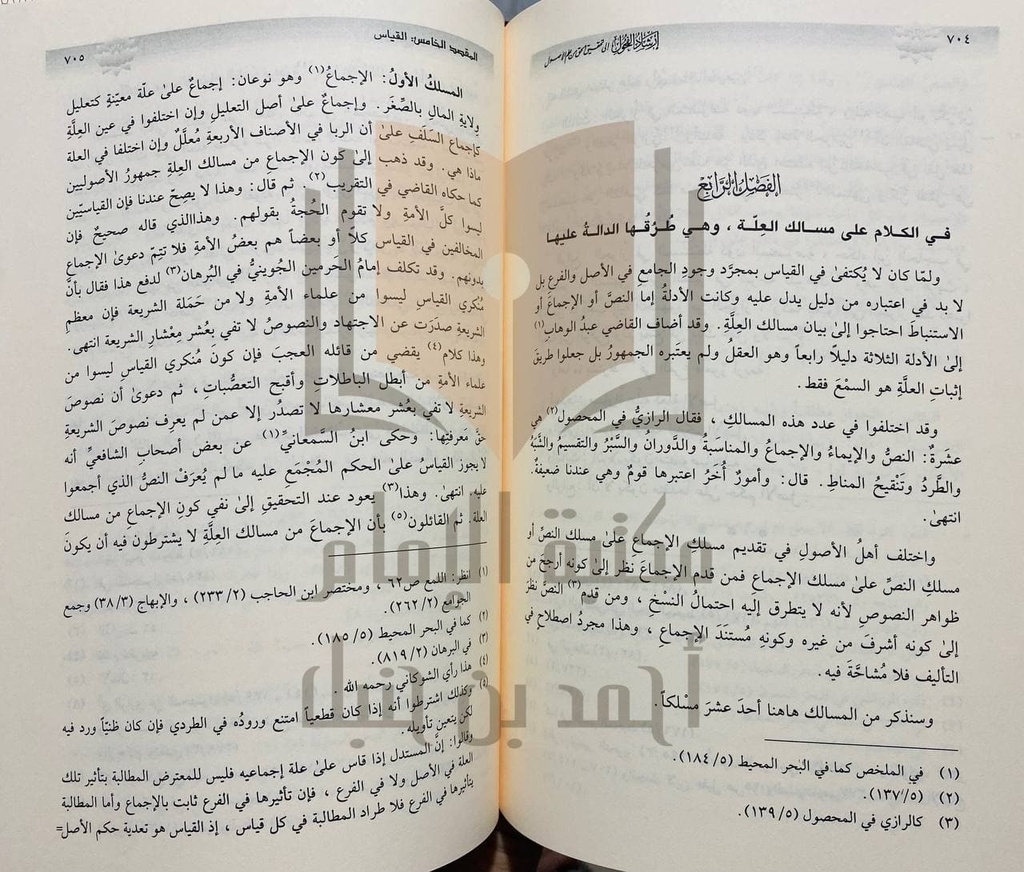 ٧٠٤
إرشاد الفحول إلى تحقيق الحق من علم الأصول
الفصل الرابع
في الكلام على مسالك العِلّة ، وهي طُرُقُها الدالةُ عليها
ولمّا كان لا يُكتفىٰ في القياس بمجرّد وجودِ الجامعِ في الأصل والفرع بل
لا بد في اعتباره من دليل يدل عليه وكانت الأدلةُ إما النصّ أو الإجماعَ أو
الاستنباطَ احتاجوا إلىٰ بيان مسالك العِلَّةِ. وقد أضاف القاضي عبدُ الوهاب(١)
إلىٰ الأدلة الثلاثة دليلاً رابعاً وهو العقلُ ولم يعتبره الجمهورُ بل جعلوا طريقَ
إثبات العلّةِ هو السمْعَ فقط .
وقد اختلفوا في عدد هذه المسالكِ ، فقال الرازيُّ في المحصول(٢) هي
عشَرةٌ: النصُّ والإيماءُ والإجماعُ والمناسَبةُ والدَّورانُ والسَّبْرُ والتقسيمُ والشَّبَهُ
والطَّردُ وتَنْقيحُ المناطِ. قال: وأمورٌ أُخَرُ اعتبرها قومٌ وهي عندنا ضعيفةٌ.
انتهىٰ.
واختلف أهلُ الأصولِ في تقديم مسلكِ الإجماعِ علىٰ مسلك النصِّ أو
مسلكِ النصِّ علىٰ مسلك الإجماعِ فمن قدّم الإجماعَ نظر إلىٰ كونه أرجحَ من
ظواهر النصوصِ لأنه لا يتطرق إليه احتمالُ النسْخِ ، ومن قدم(٣) النصَّ نظر
إلىٰ كونه أشرفَ من غيره وكونِه مُستنَدَ الإجماعِ ، وهذا مجردُ اصطلاحٍ في
التأليف فلا مُشاحَّةَ فيه.
وسنذكر من المسالك هاهنا أحدَ عشرَ مَسْلكاً.
(١) في الملخص كما في البحر المحيط (٥/ ١٨٤).
(٢) (٥/ ١٣٧).
(٣) كالرازي في المحصول (٥/ ١٣٩).
المقصد الخامس: القياس
٧٠٥
المسلكُ الأولُ: الإجماعُ(١) وهو نوعان: إجماعٌ علىٰ علّة معيّنةٍ كتعليل
ولايةِ المالِ بالصِّغَر. وإجماعٌ علىٰ أصل التعليلِ وإن اختلفوا في عين العِلَّةِ
كإجماع السَلفِ علىٰ أن الربا في الأصناف الأربعةِ مُعلَّلٌ وإن اختلفا في العلة
ماذا هي. وقد ذهب إلىٰ كون الإجماع من مسالك العِلةِ جمهورُ الأصوليين
كما حكاه القاضي في التقريب(٢). ثم قال: وهذا لا يصِحّ عندنا فإن القياسيّين
ليسوا كلَّ الأمةِ ولا تقوم الحُجةُ بقولهم. وهذاالذي قاله صحيحٌ فإن
المخالفين في القياس كلّا أو بعضاً هم بعضُ الأمةِ فلا تتِمّ دعوىٰ الإجماعِ
بدونهم. وقد تكلف إمامُ الحَرمين الجُوينيُّ في البرهان(٣) لدفع هذا فقال بأنَّ
مُنكري القياسِ ليسوا من علماء الأمةِ ولا من حَمَلة الشريعةِ فإن معظمَ
الشريعةِ صدَرَت عن الاجتهاد والنصوصُ لا تفي بعُشر مِعْشارِ الشريعة انتهى.
وهذا كلام(٤) يقضي من قائله العجبَ فإن كونَ مُنكري القياسِ ليسوا من
علماء الأمةِ من أبطل الباطلاتِ وأقبح التعصُّباتِ ، ثم دعوىٰ أن نصوصَ
الشريعةِ لا تفي بعُشر معشارِها لا تصدُر إلا عمن لم يعرِف نصوصَ الشريعةِ
حقَّ مَعرفتِها: وحكى ابنُ السَّمعانيِّ(١) عن بعض أصحاب الشافعيِّ أنه
لا يجوز القياسُ علىٰ الحكم المُجْمَعِ عليه ما لم يُعرَفْ النصُّ الذي أجمعوا
عليه. انتهىٰ. وهذا(٣) يعود عند التحقيقِ إلىٰ نفي كونِ الإجماع من مسالك
العلة. ثم القائلون(٥) بأن الإجماعَ من مسالك العِلَّةِ لا يشترطون فيه أن يكونَ
(١) انظر: اللمع ص٦٢ ، ومختصر ابن الحاجب (٢/ ٢٣٣) ، والإبهاج (٣/ ٣٨) وجمع
الجوامع (٢/ ٢٦٢).
(٢) كما في البحر المحيط (٥/ ١٨٥).
(٣) في البرهان (٢/ ٨١٩).
(٤) هذا رأي الشوكاني رحمه الله .
(٥) وكذلك اشترطوا أنه إذا كان قطعياً امتنع وروده في الطردي فإن كان ظنّياً ورد فيه
لكن يتعين تأويله.
وقالوا: إنَّ المستدل إذا قاس علىٰ علة إجماعيه فليس للمعترض المطالبة بتأثير تلك
العلة في الأصل ولا في الفرع ، فإن تأثيرها في الفرع ثابت بالإجماع وأما المطالبة
بتأثيرها في الفرع فلا طراد المطالبة في كل قياس ، إذ القياس هو تعدية حكم الأصل=
مكتبة الإمام
أحمد بن حنبل